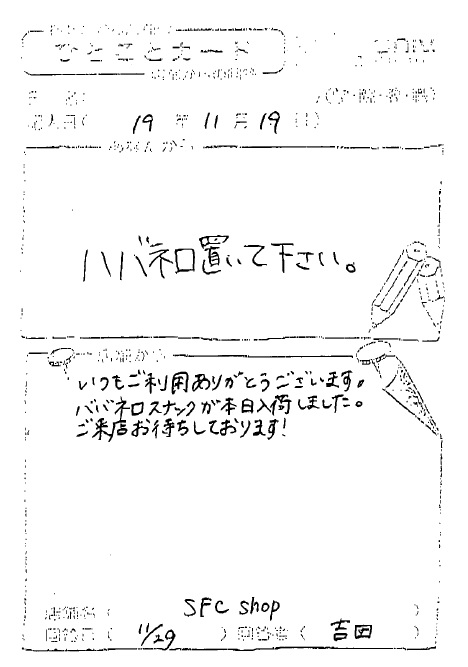 ひとことカード
19 年 11 月 19 日
あなたから
ハバネロ置いて下さい。
店舗から
いつもご利用ありがとうございます。
ハバネロスナックが本日入荷しました。
ご来店お待ちしております!
SFC shop
11/29
吉田